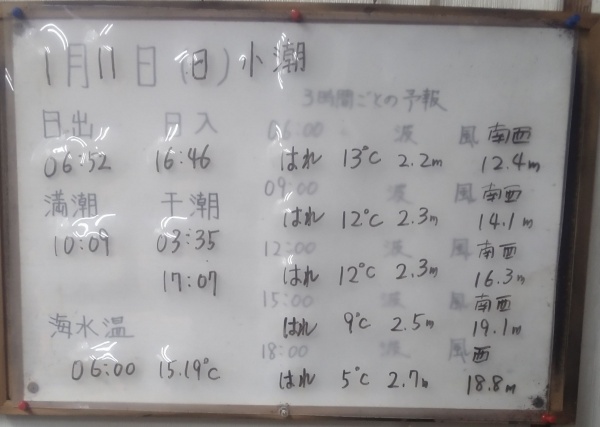 1月11日(日)小潮
3時間ごとの予報
日出 日入
06:52 16:46
満潮 干潮
10:09 03:35
17:07
海水温
06:00 15.19℃
06:00 波 風 南西
はれ 13℃ 2.2m 12.4m
09:00 波 風 南西
はれ 12℃ 2.3m 14.1m
12:00 波 風 南西
はれ 12℃ 2.3m 16.3m
15:00 波 風 南西
はれ 9℃ 2.5m 19.1m
18:00 波 風 西
はれ 5℃ 2.7m 18.8m